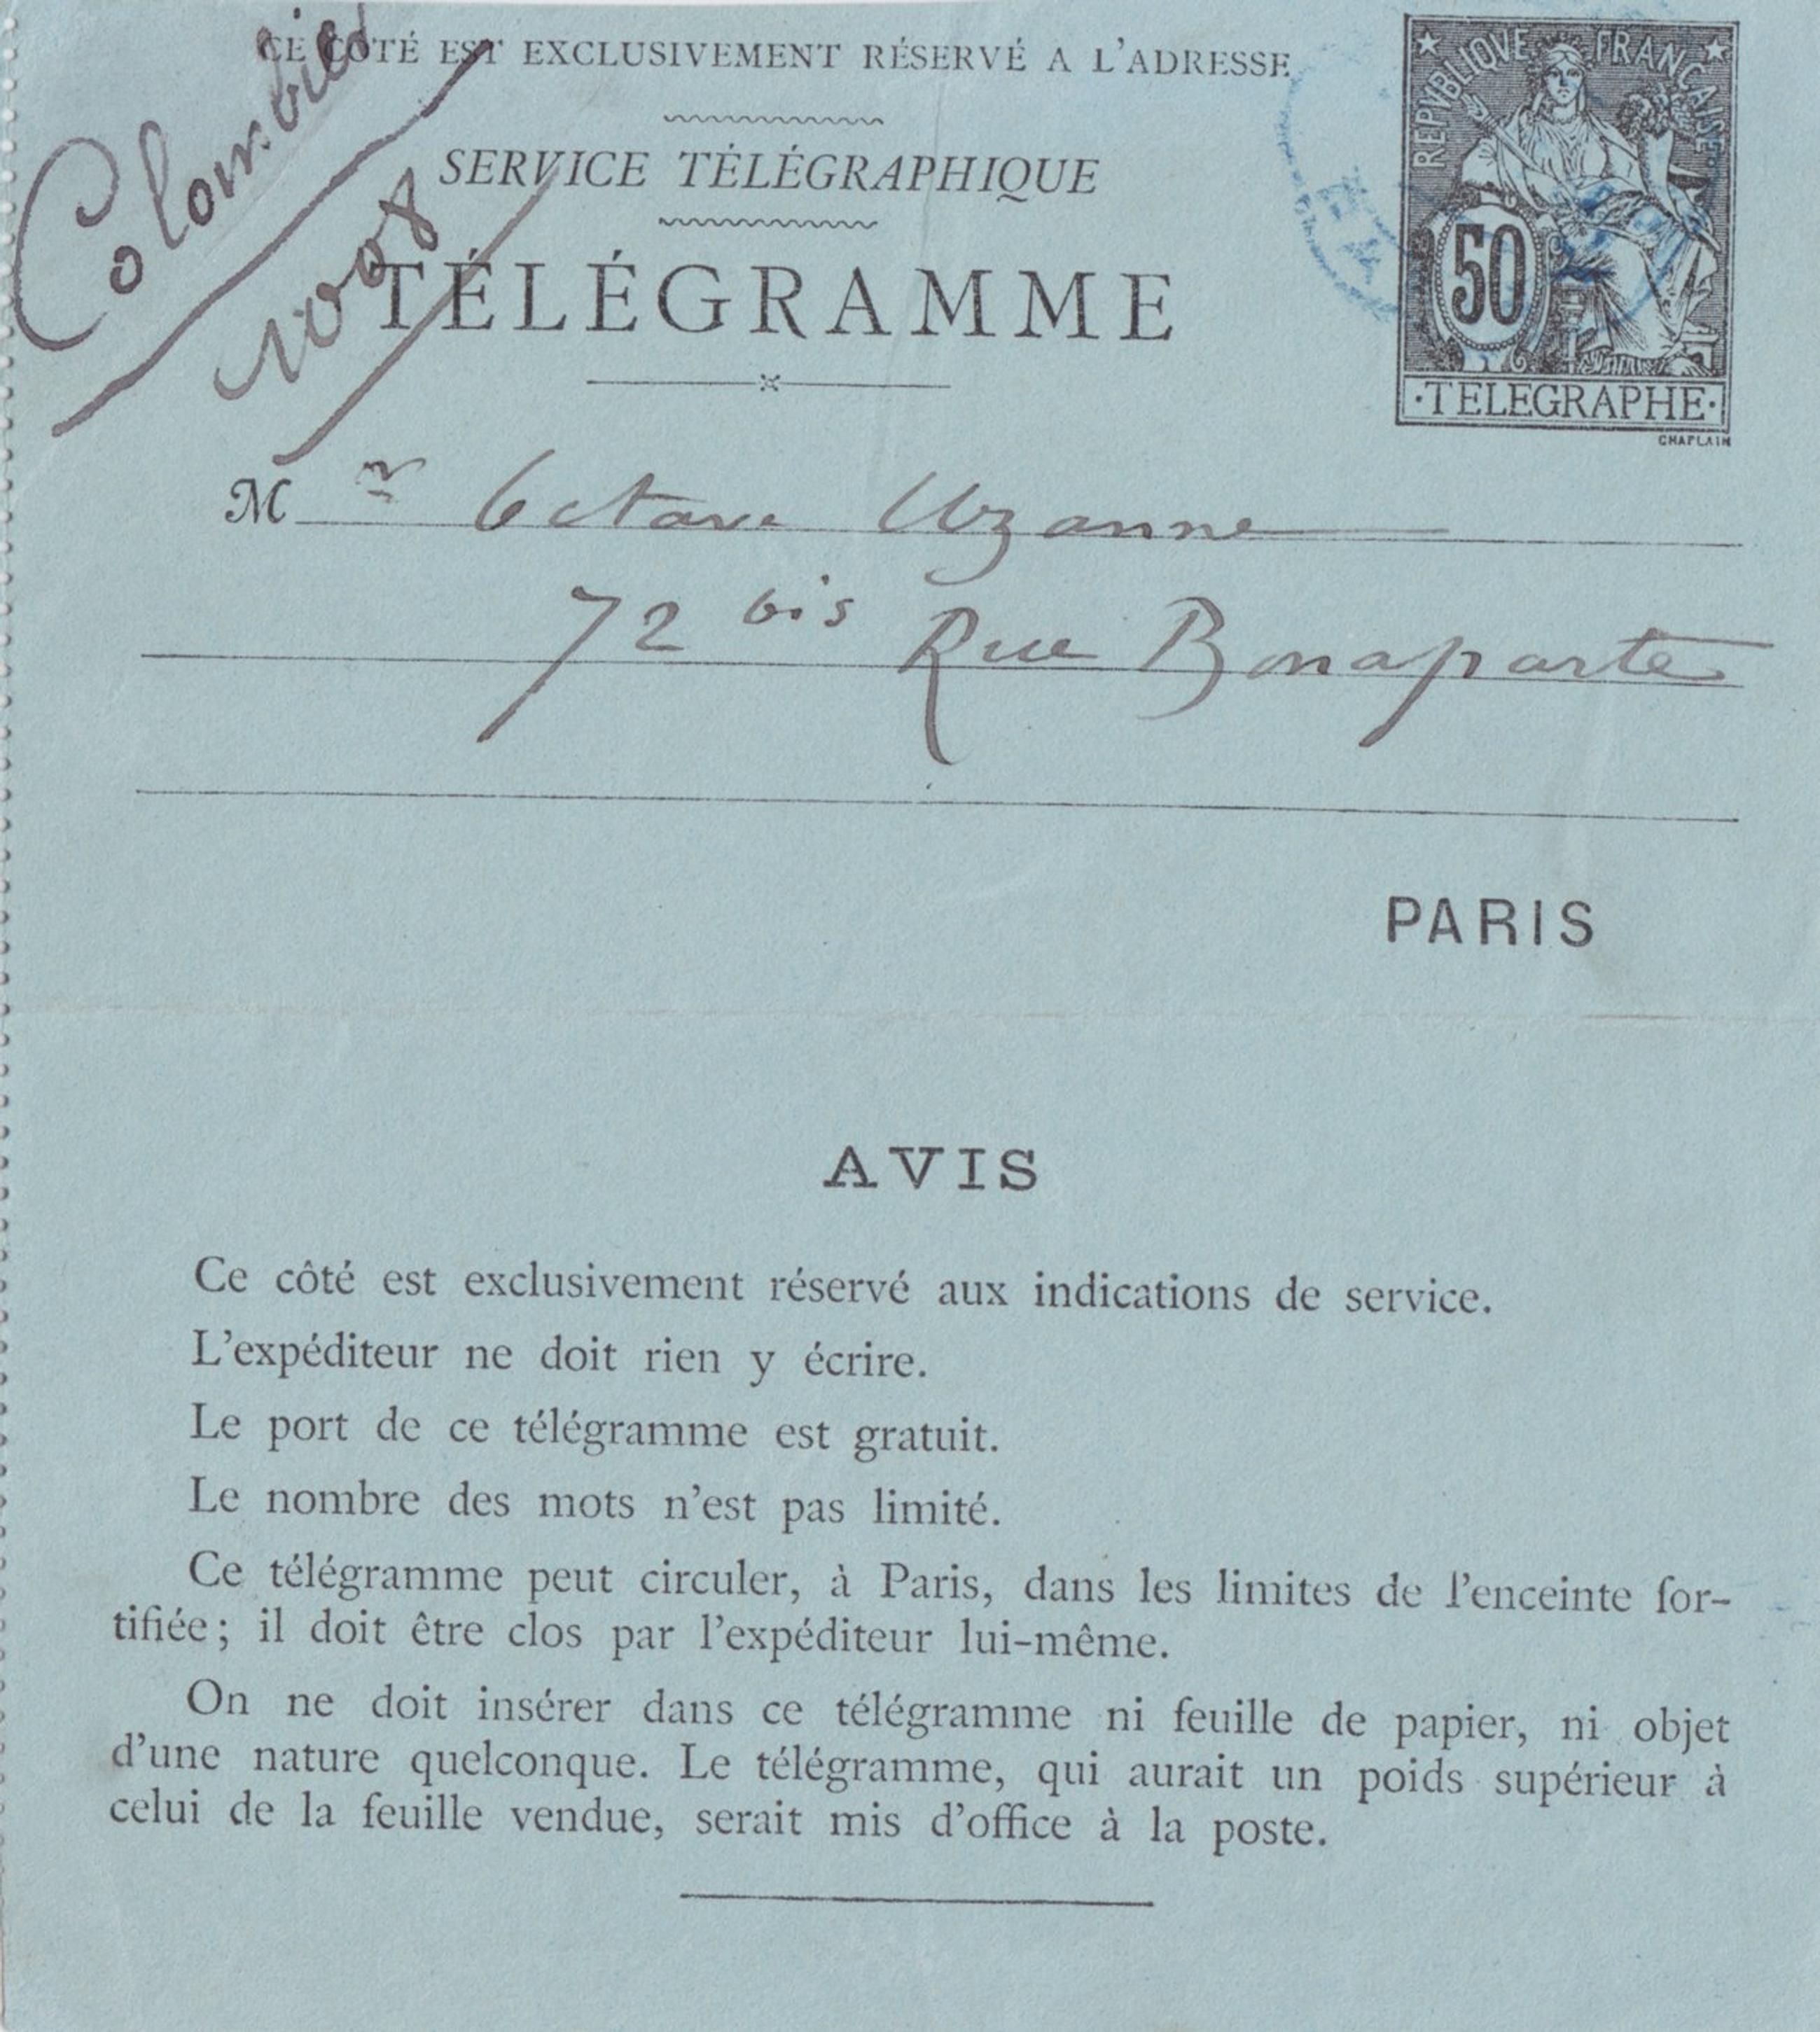 CE CÔTÉ EST EXCLUSIVEMENT RÉSERVÉ A L'ADRESSE
Colombier
SERVICE TÉLÉGRAPHIQUE
TÉLÉGRAMME
REPVBLIQVE FRANCAISE
50
·TELEGRAPHE·
CHAPLAIN
M r Octave Uzanne
72 bis Rue Bonaparte
PARIS
AVIS
Ce côté est exclusivement réservé aux indications de service.
L'expéditeur ne doit rien y écrire.
Le port de ce télégramme est gratuit.
Le nombre des mots n'est pas limité.
Ce télégramme peut circuler, à Paris, dans les limites de l'enceinte for-
tifiée; il doit être clos par l'expéditeur lui-même.
On ne doit insérer dans ce télégramme ni feuille de papier, ni objet
d'une nature quelconque. Le télégramme, qui aurait un poids supérieur à
celui de la feuille vendue, serait mis d'office à la poste.